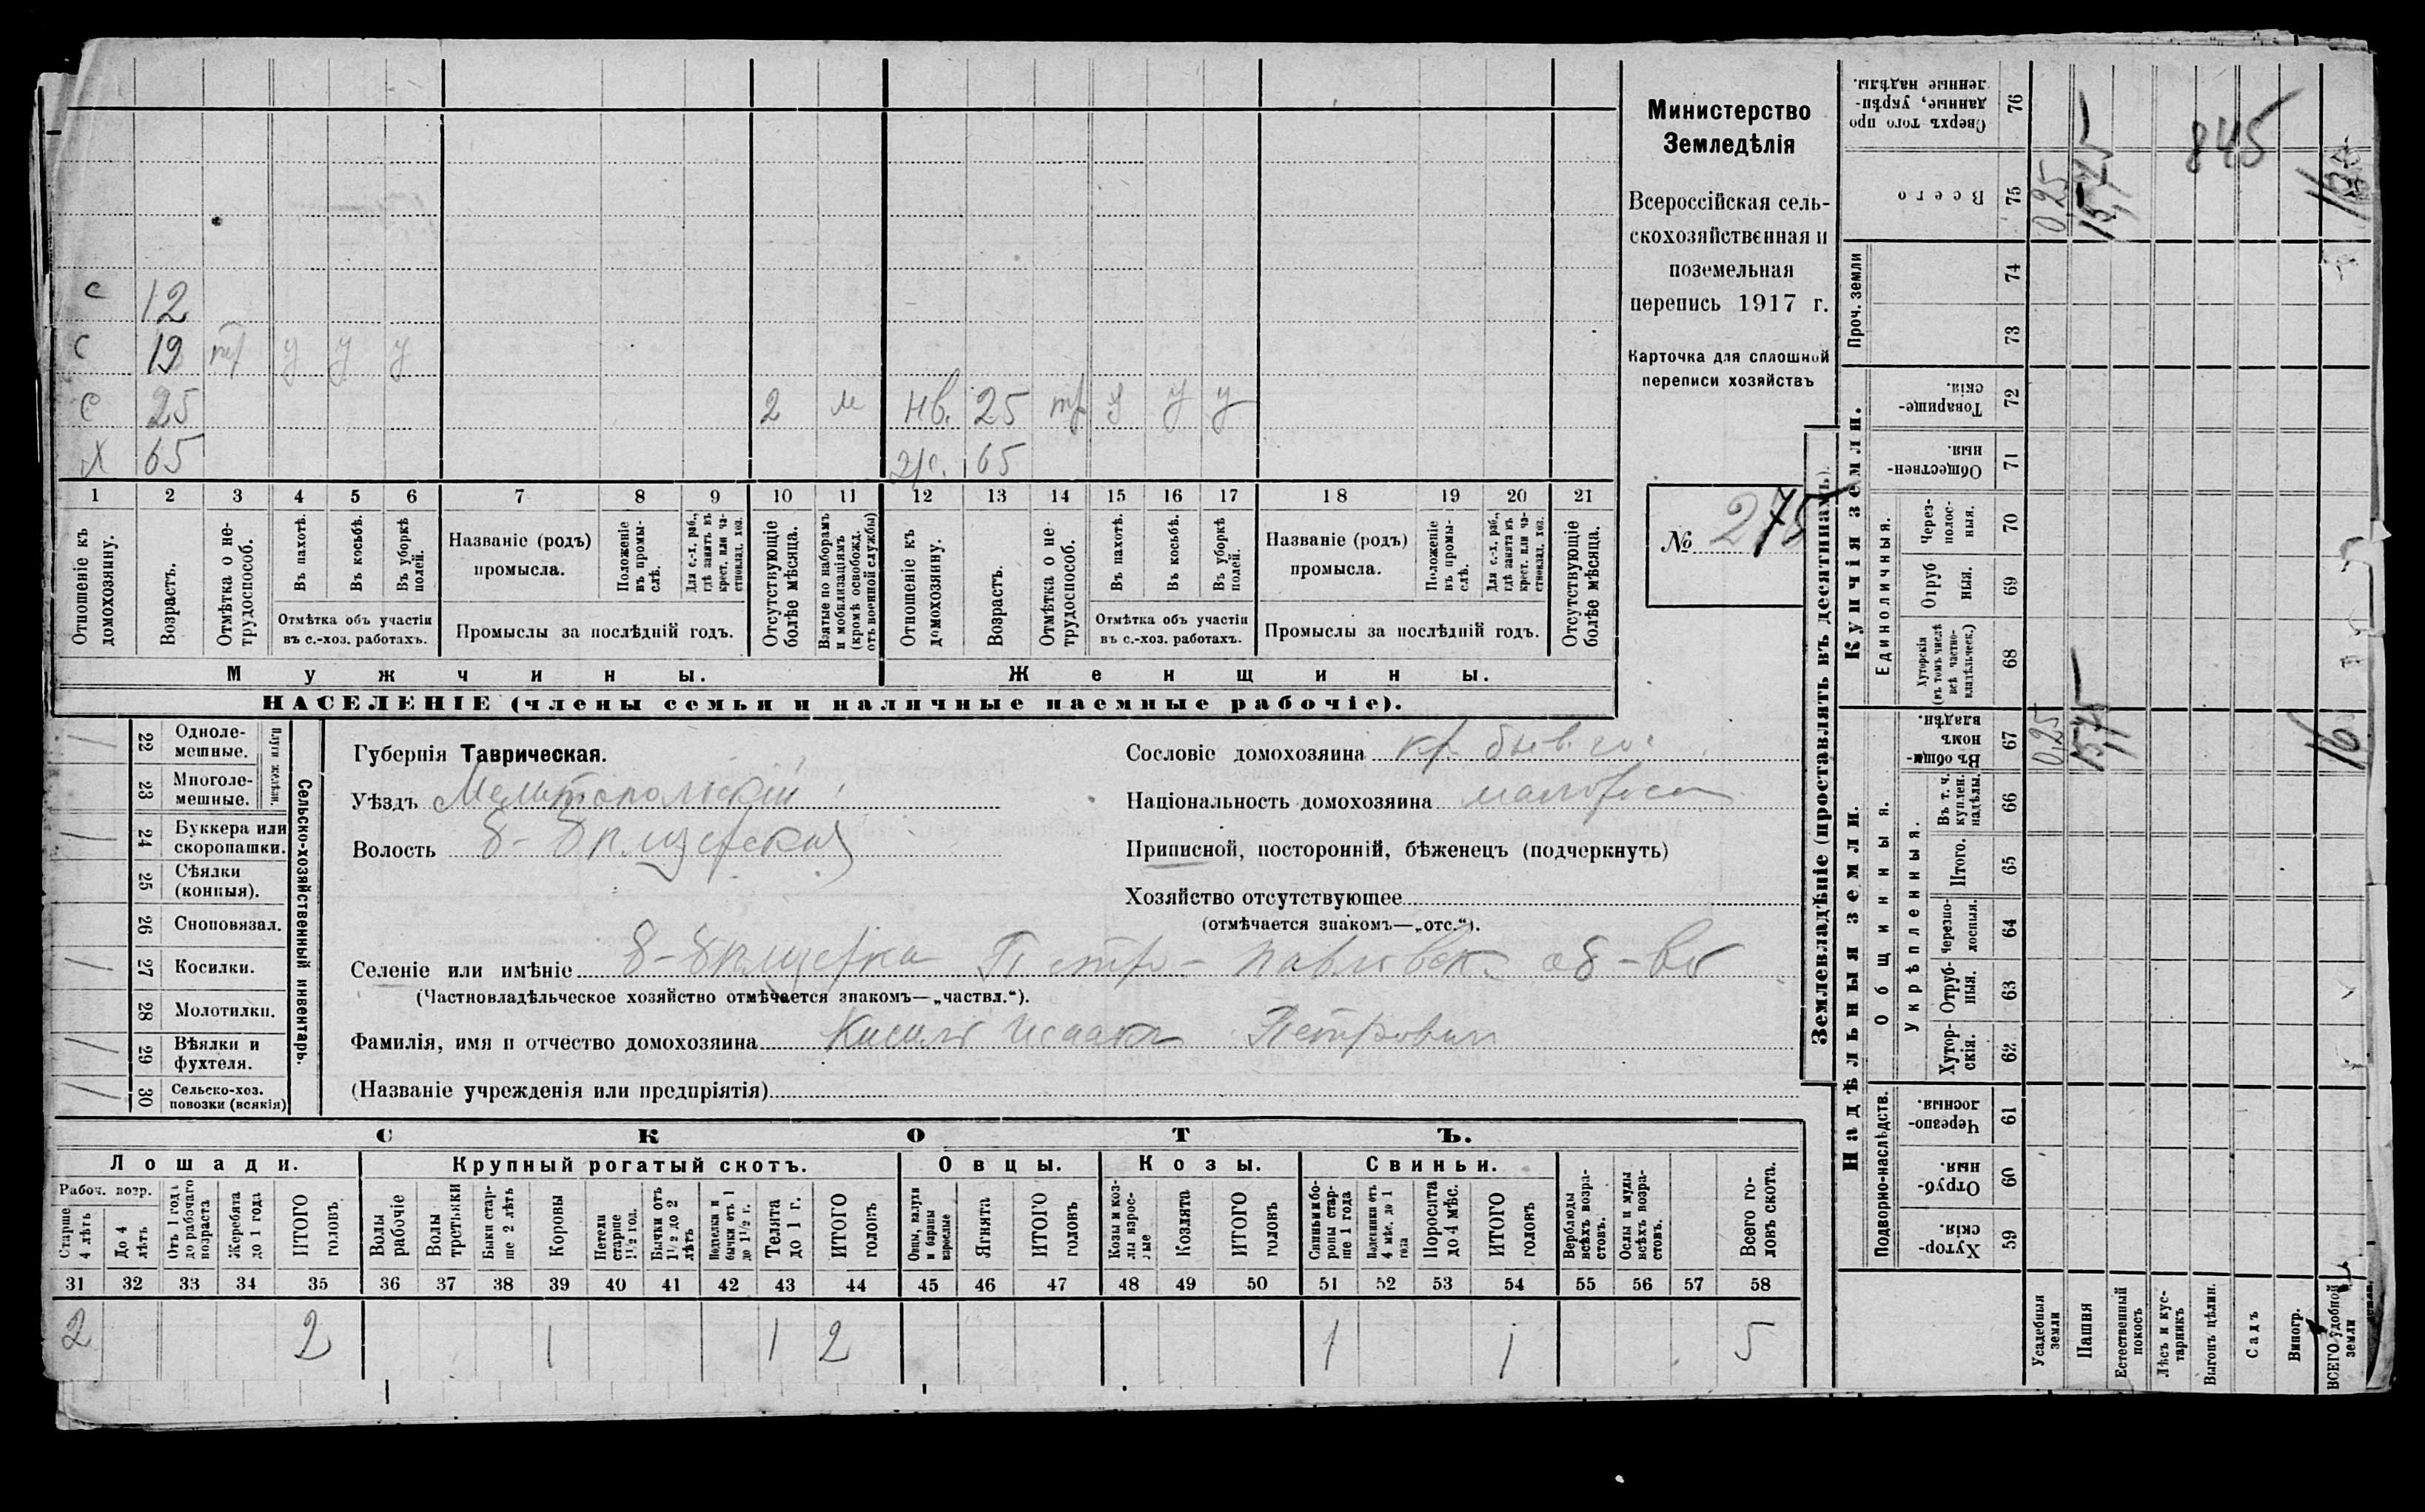 Министерство
Земледѣлія
Всероссійская сель-
скохозяйственная и
поземельная
перепись 1917 г.
Карточка для сплошной
переписи хозяйствъ
№ 275
с 12
с 19 тр у у у
с 25 2 м нв. 25 тр у у у
х 65 65
1 2 3 4 5 6 7 8 9 10 11 12 13 14 15 16 17 18 19 20 21
Отношеніе къ домохозяину.
Возрастъ.
Отмѣтка о не-трудоспособ.
Въ пахотѣ.
Въ косьбѣ.
Въ уборкѣ полей.
Отмѣтка объ участіи
въ с.-хоз. работахъ.
Названіе (родъ)
промысла.
Положеніе въ промы-слѣ.
Для с.-х. раб., гдѣ занятъ въ крест. или ча-стновлад. хоз.
Промыслы за послѣдній годъ.
Отсутствующіе болѣе мѣсяца.
Взятые по наборамъ и мобилизаціямъ (кромѣ освобожд. отъ военной службы)
Отношеніе къ домохозяину.
Возрастъ.
Отмѣтка о не-трудоспособ.
Въ пахотѣ.
Въ косьбѣ.
Въ уборкѣ полей.
Отмѣтка объ участіи
въ с.-хоз. работахъ.
Названіе (родъ)
промысла.
Положеніе въ промы-слѣ.
Для с.-х. раб., гдѣ занята въ крест. или ча-стновлад. хоз.
Промыслы за послѣдній годъ.
Отсутствующіе болѣе мѣсяца.
Мужчины. Женщины.
НАСЕЛЕНІЕ (члены семьи и наличные наемные рабочіе).
Сельско-хозяйственный инвентарь.
Плуги желѣзн.
/ 22 Одноле-мешные.
23 Многоле-мешные.
/ 24 Буккера или скоропашки.
25 Сѣялки (конныя).
26 Сноповязал.
/ 27 Косилки.
28 Молотилки.
/ 29 Вѣялки и фухтеля.
/ 30 Сельско-хоз. повозки (всякія)
Губернія Таврическая.
Уѣздъ Мелитопольскій
Волость
Сословіе домохозяина кр. бывъ. гос
Національность домохозяина малорос
Приписной, посторонній, бѣженецъ (подчеркнуть)
Хозяйство отсутствующее
(отмѣчается знакомъ—„отс.“).
Селеніе или имѣніе Петро-Павловск об-во
(Частновладѣльческое хозяйство отмѣчается знакомъ—„частвл.“).
Фамилія, имя и отчество домохозяина Исаакъ Петрович
(Названіе учрежденія или предпріятія)
СКОТЪ.
Лошади. Крупный рогатый скотъ. Овцы. Козы. Свиньи.
Рабоч. возр.
Старше 4 лѣтъ
До 4 лѣтъ
Отъ 1 года до рабочаго возраста
Жеребята до 1 года
ИТОГО головъ
Волы рабочіе
Волы третьяки
Быки стар-ше 2 лѣтъ
Коровы
Нетели старше 1½ год.
Бычки отъ 1½ до 2 лѣтъ
Подтелки и бычки отъ 1 до 1½ г.
Телята до 1 г.
ИТОГО головъ
Овцы, валухи и бараны взрослые
Ягнята
ИТОГО головъ
Козы и коз-лы взрос-лые
Козлята
ИТОГО головъ
Свиньи и бо-ровы стар-ше 1 года
Подсвинки отъ 4 мѣс. до 1 года
Поросята до 4 мѣс.
ИТОГО головъ
Верблюды всѣхъ возра-стовъ.
Ослы и мулы всѣхъ возра-стовъ.
Всего го-ловъ скота.
31 32 33 34 35 36 37 38 39 40 41 42 43 44 45 46 47 48 49 50 51 52 53 54 55 56 57 58
2 2 1 1 2 1 1 5
Землевладѣніе (проставлять въ десятинахъ).
Купчія земли.
Надѣльныя земли.
Сверхъ того про-данные, укрѣп-ленные надѣлы. 76
845
Всего 75 0,25 15,75
Проч. земли 74
73
Товарище-скія. 72
Обществен-ныя. 71
Единоличныя.
Через-полос-ныя. 70
Отруб-ныя. 69
Хуторскія (въ томъ числѣ всѣ частно-владѣльческ.) 68
Общинныя.
Въ общин-номъ владѣн. 67 0,25 15,75 16
Укрѣпленныя.
Въ т. ч. куплен. надѣлы. 66
Итого. 65
Черезпо-лосныя. 64
Отруб-ныя. 63
Хутор-скія. 62
Подворно-наслѣдств.
Черезпо-лосныя. 61
Отруб-ныя. 60
Хутор-скія. 59
Усадебныя земли
Пашня
Естественный покосъ
Лѣсъ и кус-тарникъ
Выгонъ цѣлин.
Садъ
Виногр.
ВСЕГО удобной земли